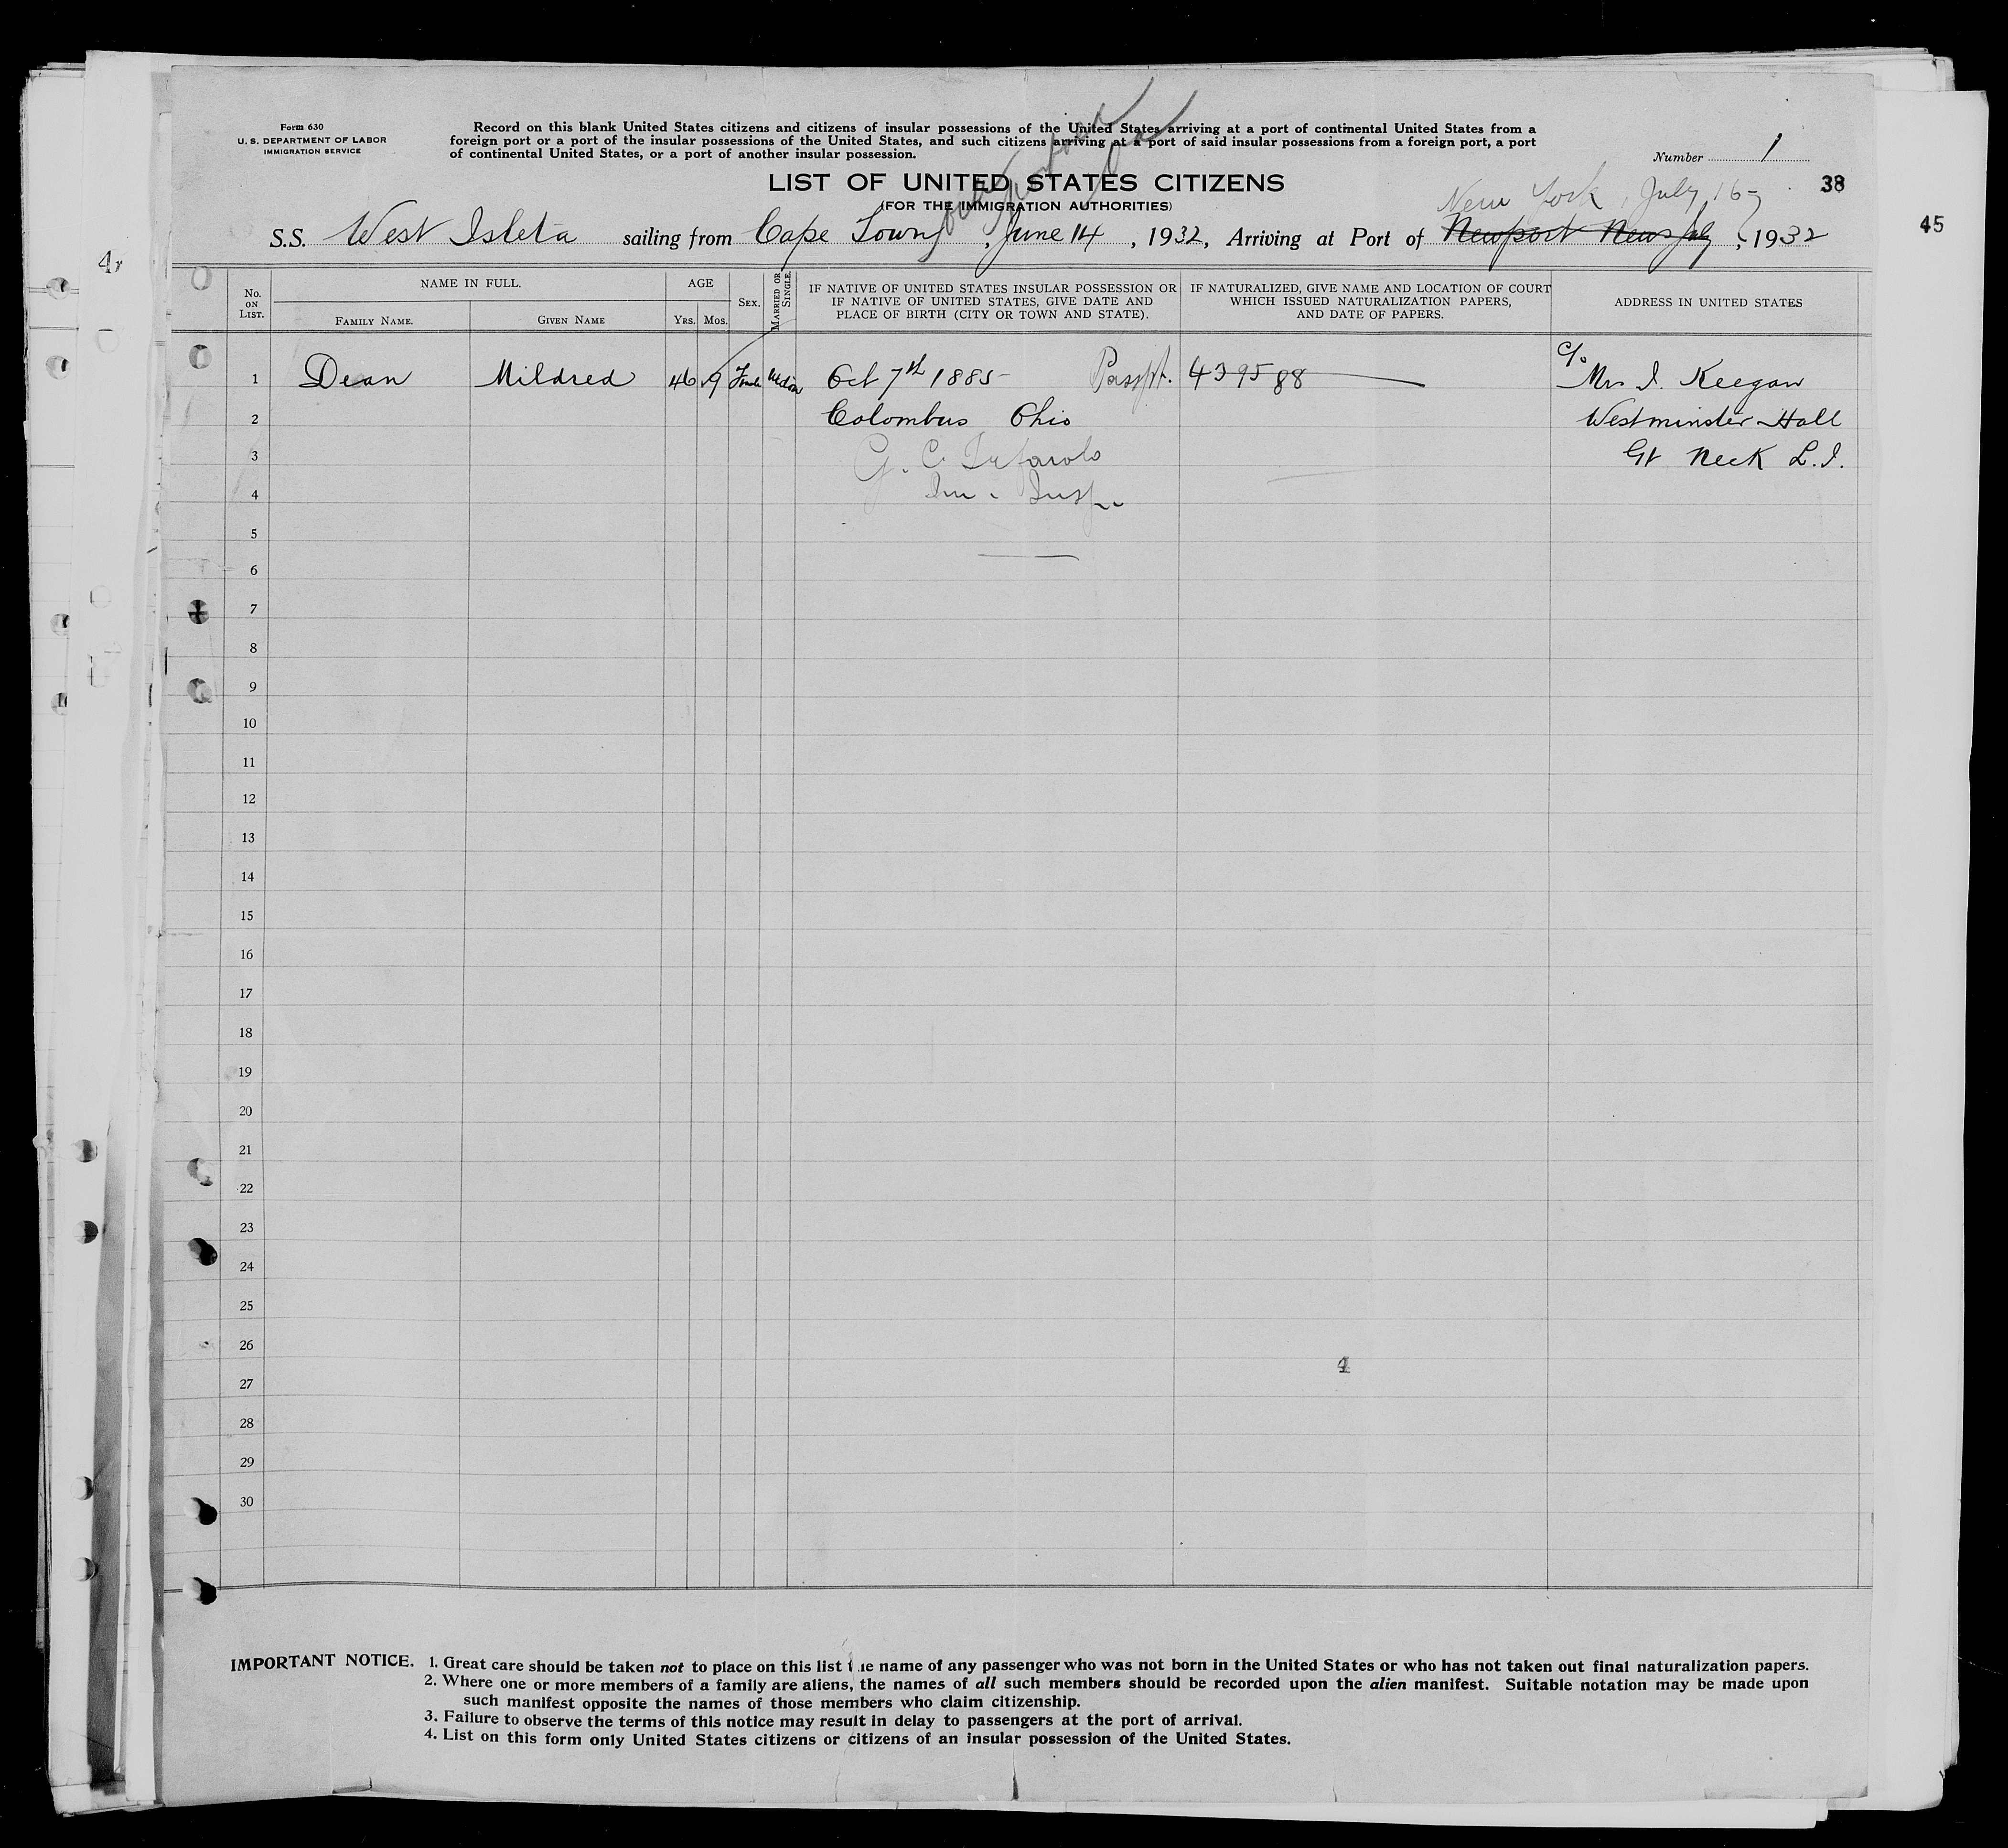 Form 630
U. S. DEPARTMENT OF LABOR
IMMIGRATION SERVICE
Record on this blank United States citizens and citizens of insular possessions of the United States arriving at a port of continental United States from a
foreign port or a port of the insular possessions of the United States, and such citizens arriving at a port of said insular possessions from a foreign port, a port
of continental United States, or a port of another insular possession.
Number 1
LIST OF UNITED STATES CITIZENS
(FOR THE IMMIGRATION AUTHORITIES)
New York, July 16
38
45
S.S. West Isleta sailing from Cape Town, June 14, 1932, Arriving at Port of Newport News July, 1932
No. ON LIST.
NAME IN FULL.
FAMILY NAME.
GIVEN NAME
AGE
YRS.
MOS.
SEX.
MARRIED OR SINGLE.
IF NATIVE OF UNITED STATES INSULAR POSSESSION OR
IF NATIVE OF UNITED STATES, GIVE DATE AND
PLACE OF BIRTH (CITY OR TOWN AND STATE).
IF NATURALIZED, GIVE NAME AND LOCATION OF COURT
WHICH ISSUED NATURALIZATION PAPERS,
AND DATE OF PAPERS.
ADDRESS IN UNITED STATES
1 Dean Mildred 46 9 Oct 7th 1885 Passpt. 439588 c/o Mrs I. Keegan
2 Colombus Ohio Westminster Hall
3 G. C. Gt Neck L.I.
4 Im. Insp.
5
6
7
8
9
10
11
12
13
14
15
16
17
18
19
20
21
22
23
24
25
26
27
28
29
30
IMPORTANT NOTICE. 1. Great care should be taken not to place on this list the name of any passenger who was not born in the United States or who has not taken out final naturalization papers.
2. Where one or more members of a family are aliens, the names of all such members should be recorded upon the alien manifest. Suitable notation may be made upon
such manifest opposite the names of those members who claim citizenship.
3. Failure to observe the terms of this notice may result in delay to passengers at the port of arrival.
4. List on this form only United States citizens or citizens of an insular possession of the United States.